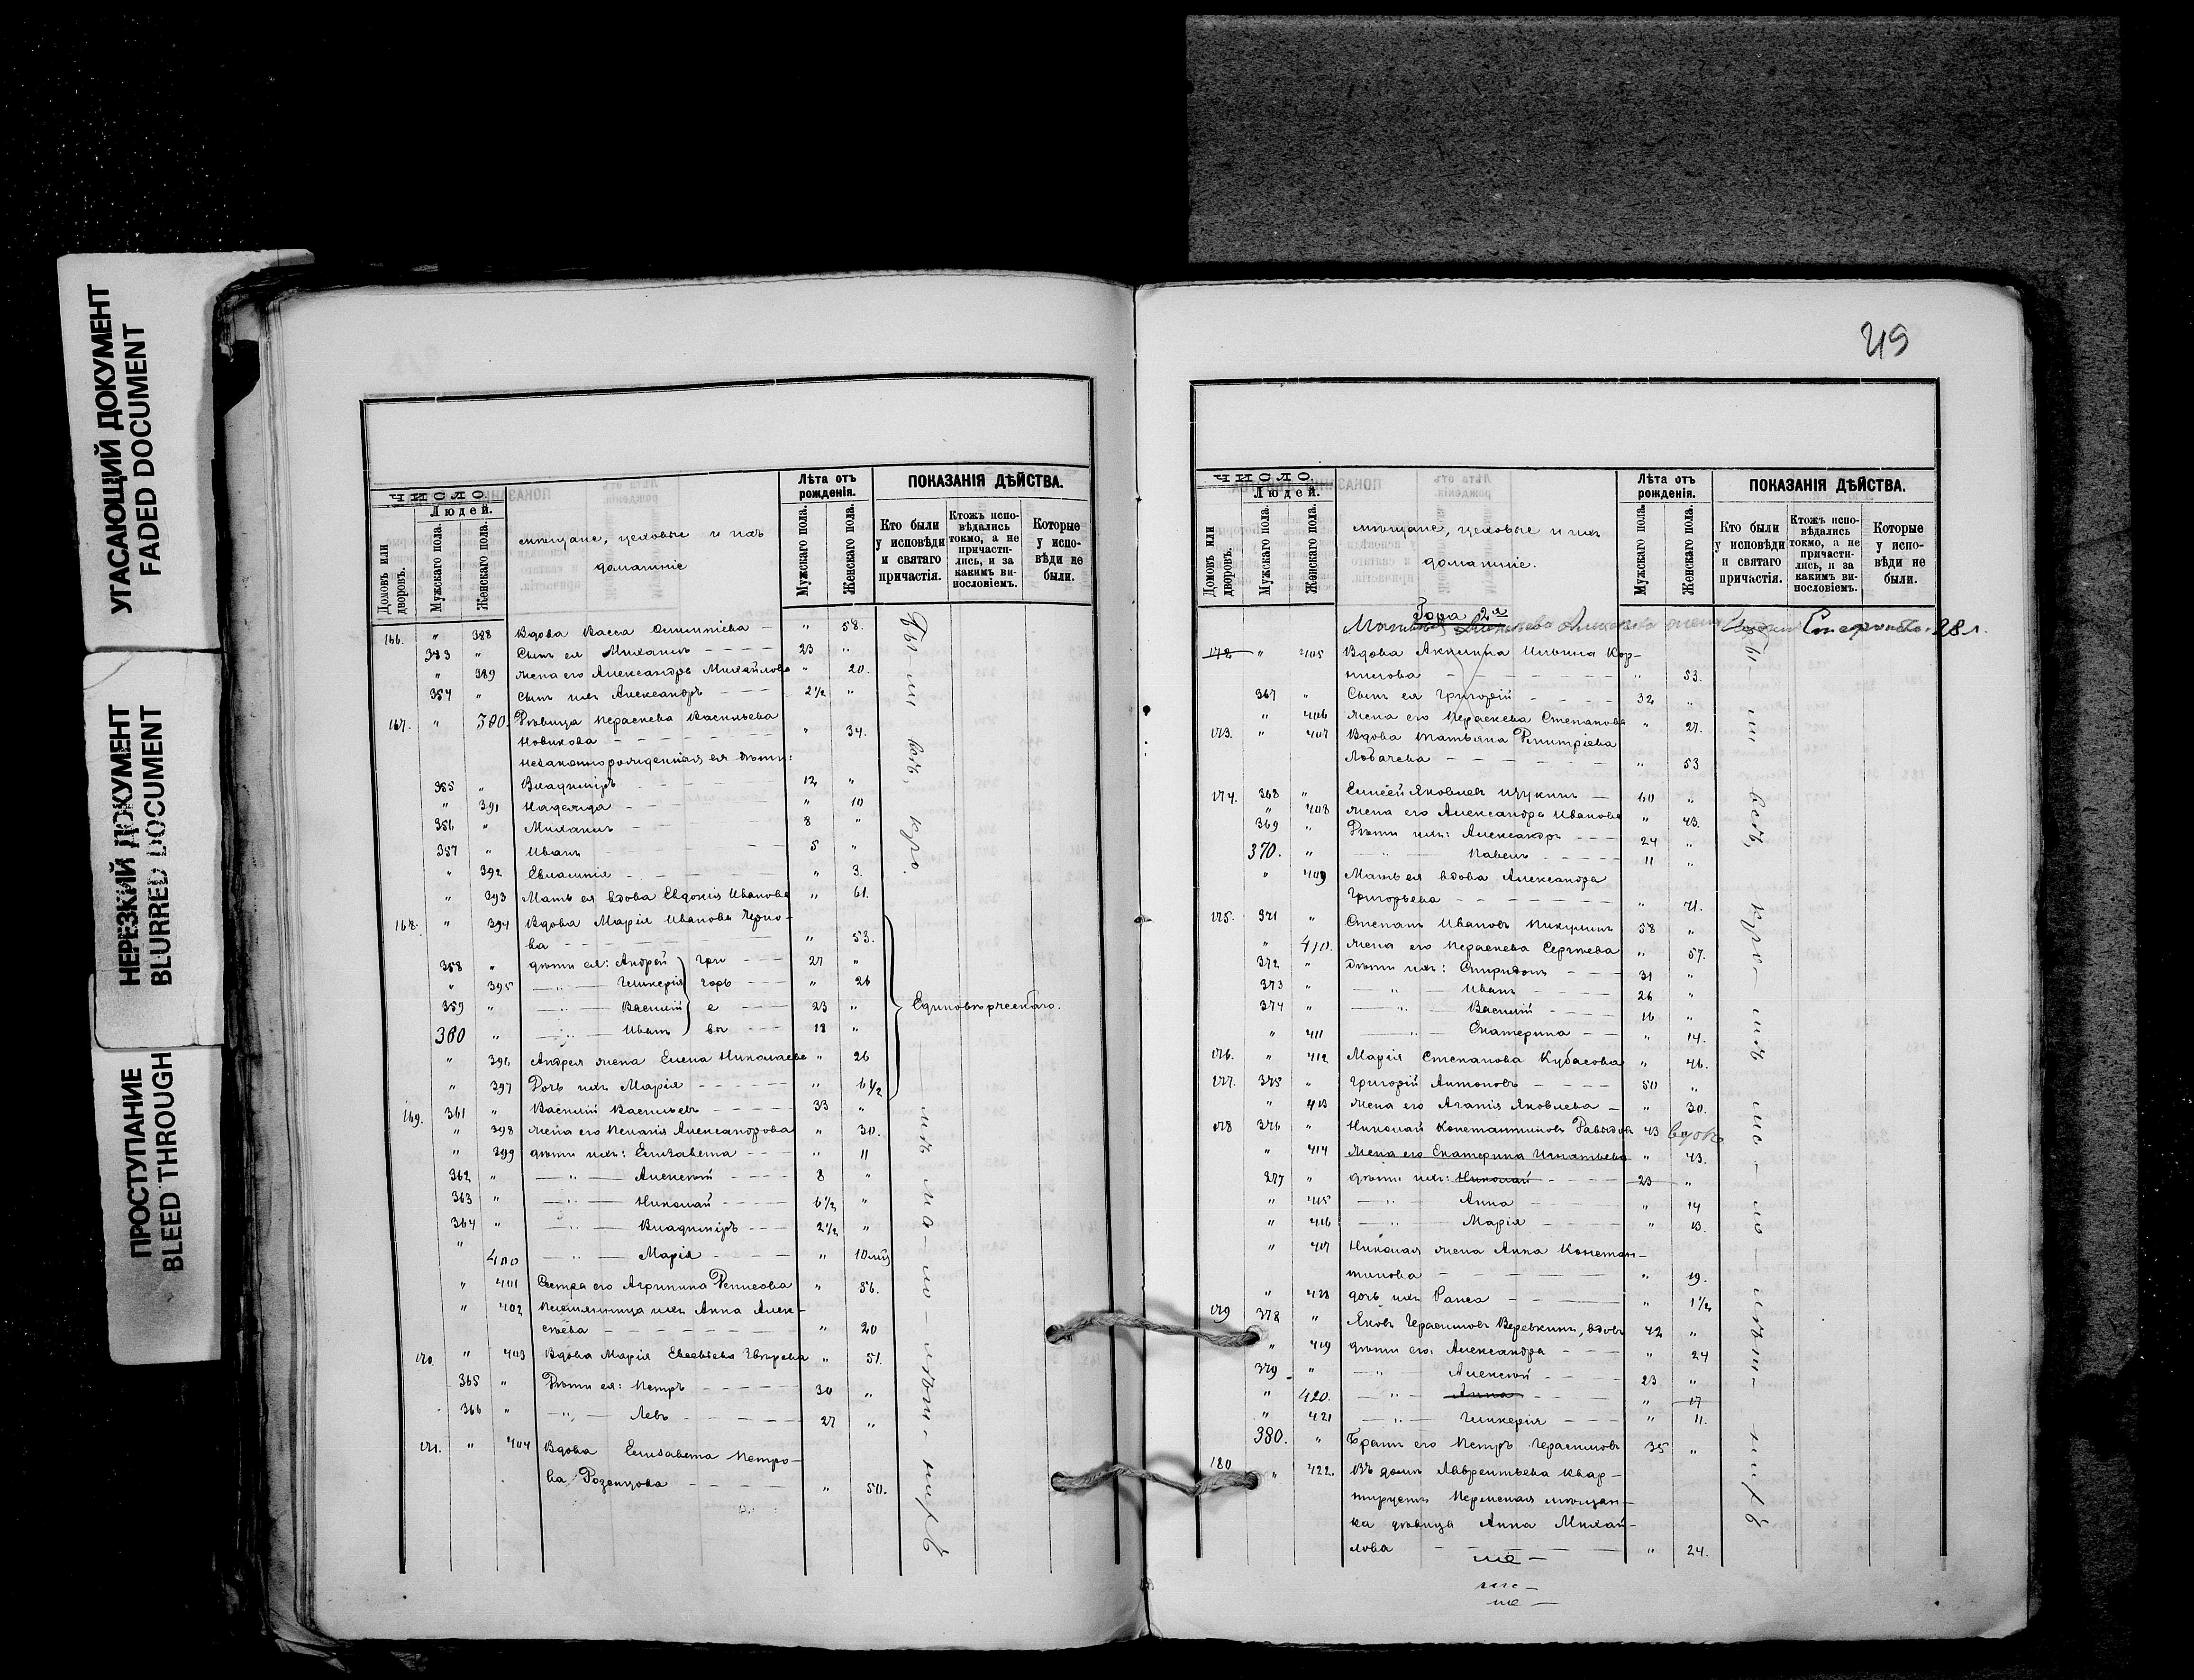 УГАСАЮЩИЙ ДОКУМЕНТ
FADED DOCUMENT
НЕРЕЗКИЙ ДОКУМЕНТ
BLURRED DOCUMENT
ПРОСТУПАНИЕ
BLEED THROUGH
ЧИСЛО.
Людей.
Домовъ или дворовъ.
Мужскаго пола.
Женскаго пола.
мѣщане, цеховые и ихъ
домашніе
Лѣта отъ рожденія.
Мужскаго пола.
Женскаго пола.
ПОКАЗАНІЯ ДѢЙСТВА.
Кто были у исповѣди и святаго причастія.
Ктожъ исповѣдались токмо, а не причастились, и за какимъ винословіемъ.
Которые у исповѣди не были.
166. " 388 Вдова Васса — " 58.
353 " Сынъ ея Михаилъ — 23 "
" 389 жена его Александра Михайлова " 20.
354 " Сынъ ихъ Александръ — 2½ "
167. " 390. Дѣвица Параскева Васильева
Новикова — " 34.
незаконнорожденныя ея дѣти:
355 " Владиміръ — 12 "
" 391 Надежда — " 10
356 " Михаилъ — 8 "
357 " Иванъ — 5 "
" 392 Евлампія — " 3.
" 393 Мать ея вдова Евдокія Иванова " 61.
168. " 394 Вдова Марія Иванова Черно-
ва — " 53.
358 " дѣти ея: Андрей Гри — 27 "
" 395 — " — Гликерія горь — " 26
359 " — " — Василій е — 23 "
360 " — " — Иванъ вы — 18 "
Единовѣрческаго.
" 396 Андрея жена Елена Николаева " 26
" 397 Дочь ихъ Марія — " 6½
169. 361 " Василій Васильевъ — 33 "
" 398 жена его Пелагія Александрова " 30.
" 399 дѣти ихъ: Елизавета — " 11
362 " — " — Алексѣй — 8 "
363 " — " — Николай — 6½ "
364 " — " — Владиміръ — 2½ "
" 400 — " — Марія — " 10
" 401 Сестра его Агрипина Денисова " 56.
" 402 Племянница ихъ Анна Алек-
сѣева — " 20
170. " 403 Вдова Марія Евсевіева Звѣрева " 51.
365 " Дѣти ея: Петръ — 30 "
366 " — " — Левъ — 27 "
171. " 404 Вдова Елизавета Петро-
ва Розенцова — " 50.
49
ЧИСЛО.
Людей.
Домовъ или дворовъ.
Мужскаго пола.
Женскаго пола.
мѣщане, цеховые и ихъ
домашніе.
Лѣта отъ рожденія.
Мужскаго пола.
Женскаго пола.
ПОКАЗАНІЯ ДѢЙСТВА.
Кто были у исповѣди и святаго причастія.
Ктожъ исповѣдались токмо, а не причастились, и за какимъ винословіемъ.
Которые у исповѣди не были.
Гора 2я
28 л.
172 " 405 Вдова Акилина Ильина Кор-
нилова — " 53.
367 " Сынъ ея Григорій — 32 "
" 406 жена его Параскева Степанова " 27.
173. " 407 Вдова Татьяна Димитріева
Лобачева — " 53
174. 368 " Елисей Яковлевъ Щукинъ — 60 "
" 408 жена его Александра Иванова " 43.
369 " Дѣти ихъ: Александръ — 24 "
370. " — " — Павелъ — 11 "
" 409 Мать ея вдова Александра
Григорьева — " 71.
175. 371 " Степанъ Ивановъ Никулинъ 58 "
" 410. жена его Параскева Сергѣева " 57.
372 " дѣти ихъ: Спиридонъ — 31 "
373 " — " — Иванъ — 26 "
374 " — " — Василій — 16 "
" 411 — " — Екатерина — " 14.
176. " 412 Марія Степанова Кубасова " 46.
177. 375 " Григорій Антоновъ — 50 "
" 413 жена его Агапія Яковлева — " 30.
178 376 " Николай Константиновъ Давыдовъ 43 вдовъ
" 414 жена его Екатерина Игнатьева " 43.
377 " дѣти ихъ: Николай — 23 "
" 415 — " — Анна — " 14
" 416 — " — Марія — " 13.
" 417 Николая жена Анна Констан-
тинова — " 19.
" 418 дочь ихъ Раиса — " 1½
179 378 " Яковъ Герасимовъ Веревкинъ, вдовъ 42 "
" 419 дѣти его: Александра — " 24
379 " — " — Алексѣй — 23 "
" 420. — " — Анна — " 17
" 421 — " — Гликерія — " 11.
380. " Братъ его Петръ Герасимовъ 35 "
180 " 422. Въ домѣ Лаврентьева квар-
тируетъ Пермская мѣщан-
ка дѣвица Анна Михай-
лова — " 24.